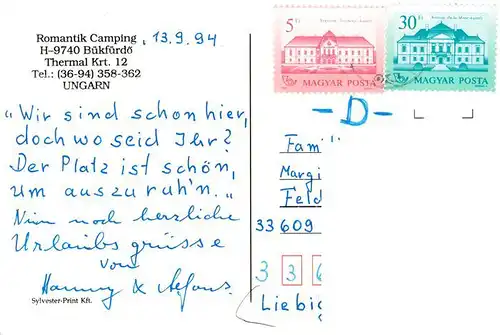 Romantik Camping
H-9740 Bükfürdő
Thermal Krt. 12
Tel.: (36-94) 358-362
UNGARN
, 13.9.94
5 Ft
MAGYAR POSTA
30 Ft
MAGYAR POSTA
-D-
„Wir sind schon hier,
doch wo seid Ihr?
Der Platz ist schön,
um auszuruh'n."
Nun noch herzliche
Urlaubsgrüsse
von
Hanny & Alfons
Sylvester-Print Kft.
Fami
Margi
Feld
33609
3 3 6
Liebig